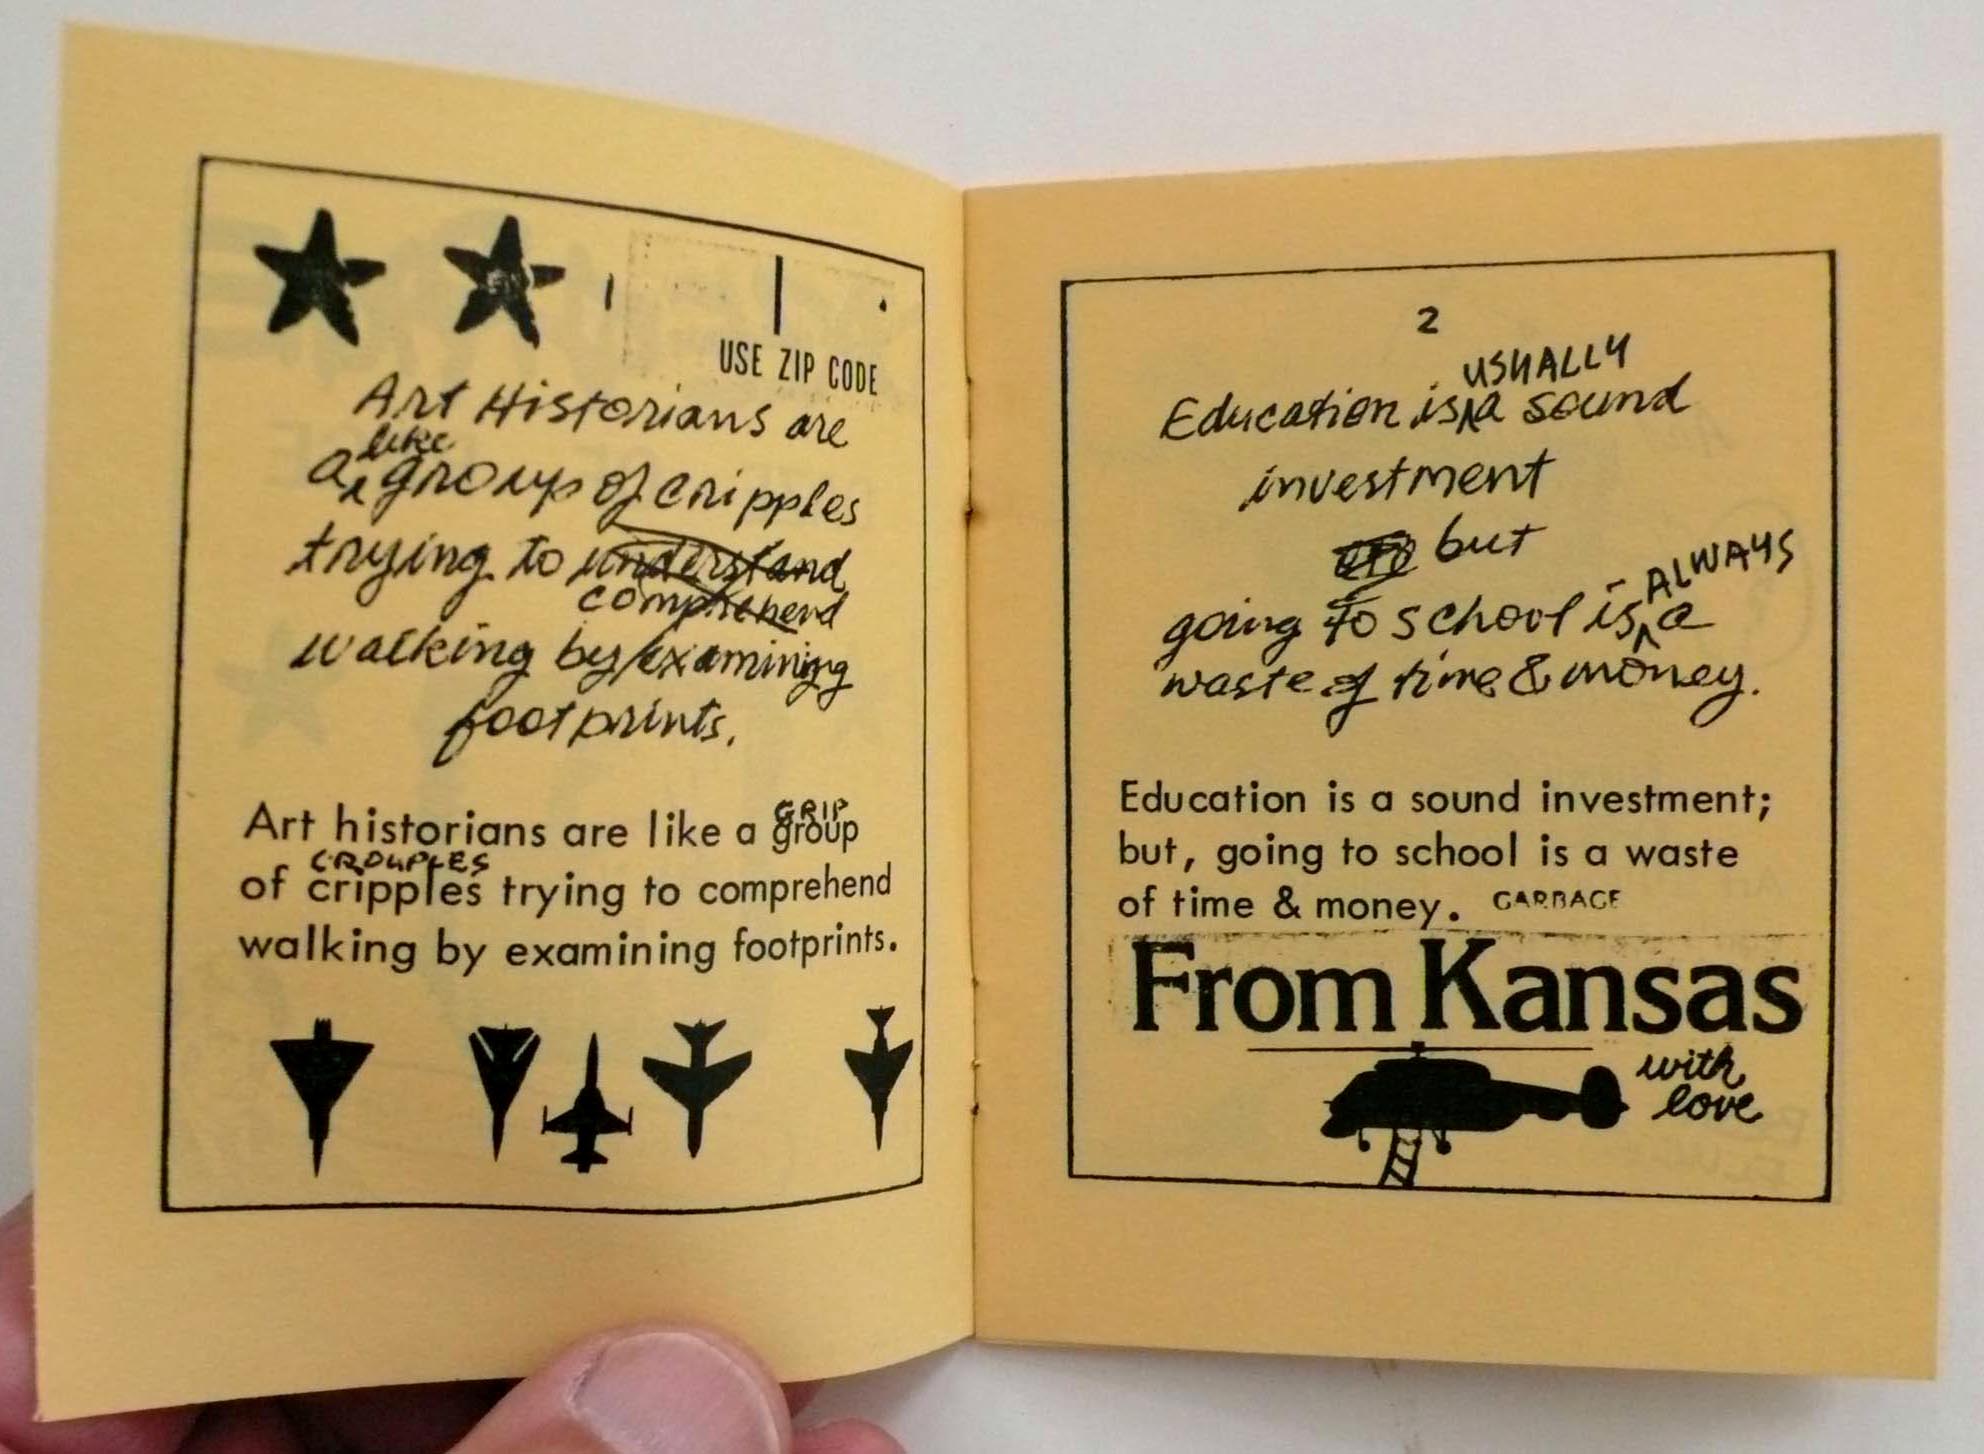 USE ZIP CODE
Art Historians are
like
a group of cripples
trying to understand
comprehend
walking by examining
footprints.
GRIP
Art historians are like a group
CROUPLES
of cripples trying to comprehend
walking by examining footprints.
2
USUALLY
Education is a sound
investment
but
ALWAYS
going to school is a
waste of time & money.
Education is a sound investment;
but, going to school is a waste
of time & money. GARBAGE
From Kansas
with
love